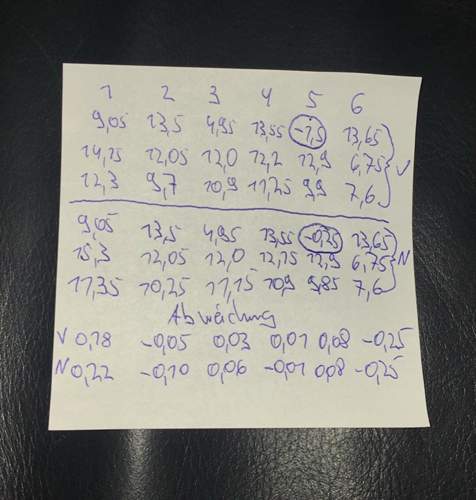 1 2 3 4 5 6
9,05 13,5 4,95 13,55 -1,5 13,65
14,15 12,05 12,0 12,2 12,9 6,75 V
12,3 9,7 10,9 11,25 9,9 7,6
9,05 13,5 4,95 13,55 -0,25 13,65
15,3 12,05 12,0 12,15 12,9 6,75 N
11,35 10,25 11,15 10,9 9,85 7,6
Abweichung
V 0,18 -0,05 0,03 0,01 0,08 -0,25
N 0,22 -0,10 0,06 -0,01 0,08 -0,25